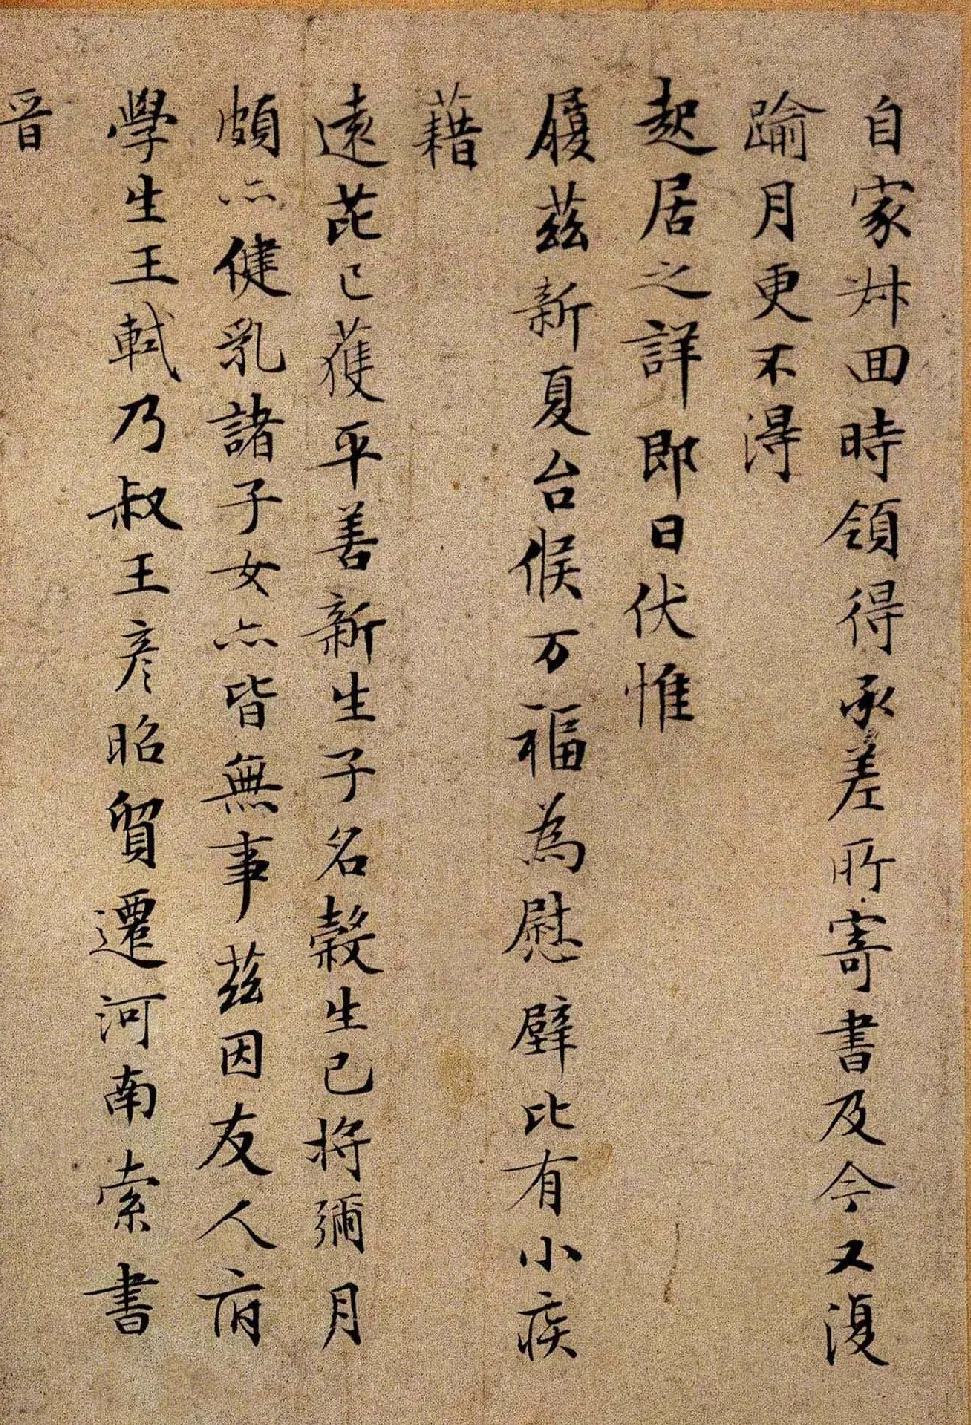 自家舛回時領得承差所寄書及今又復
踰月更不得
起居之詳即日伏惟
履茲新夏台候万福為慰璧比有小疾
藉
遠芘已獲平善新生子名穀生已将彌月
頗亦健乳諸子女亦皆無事茲因友人府
學生王軾乃叔王彦昭貿遷河南索書
晉